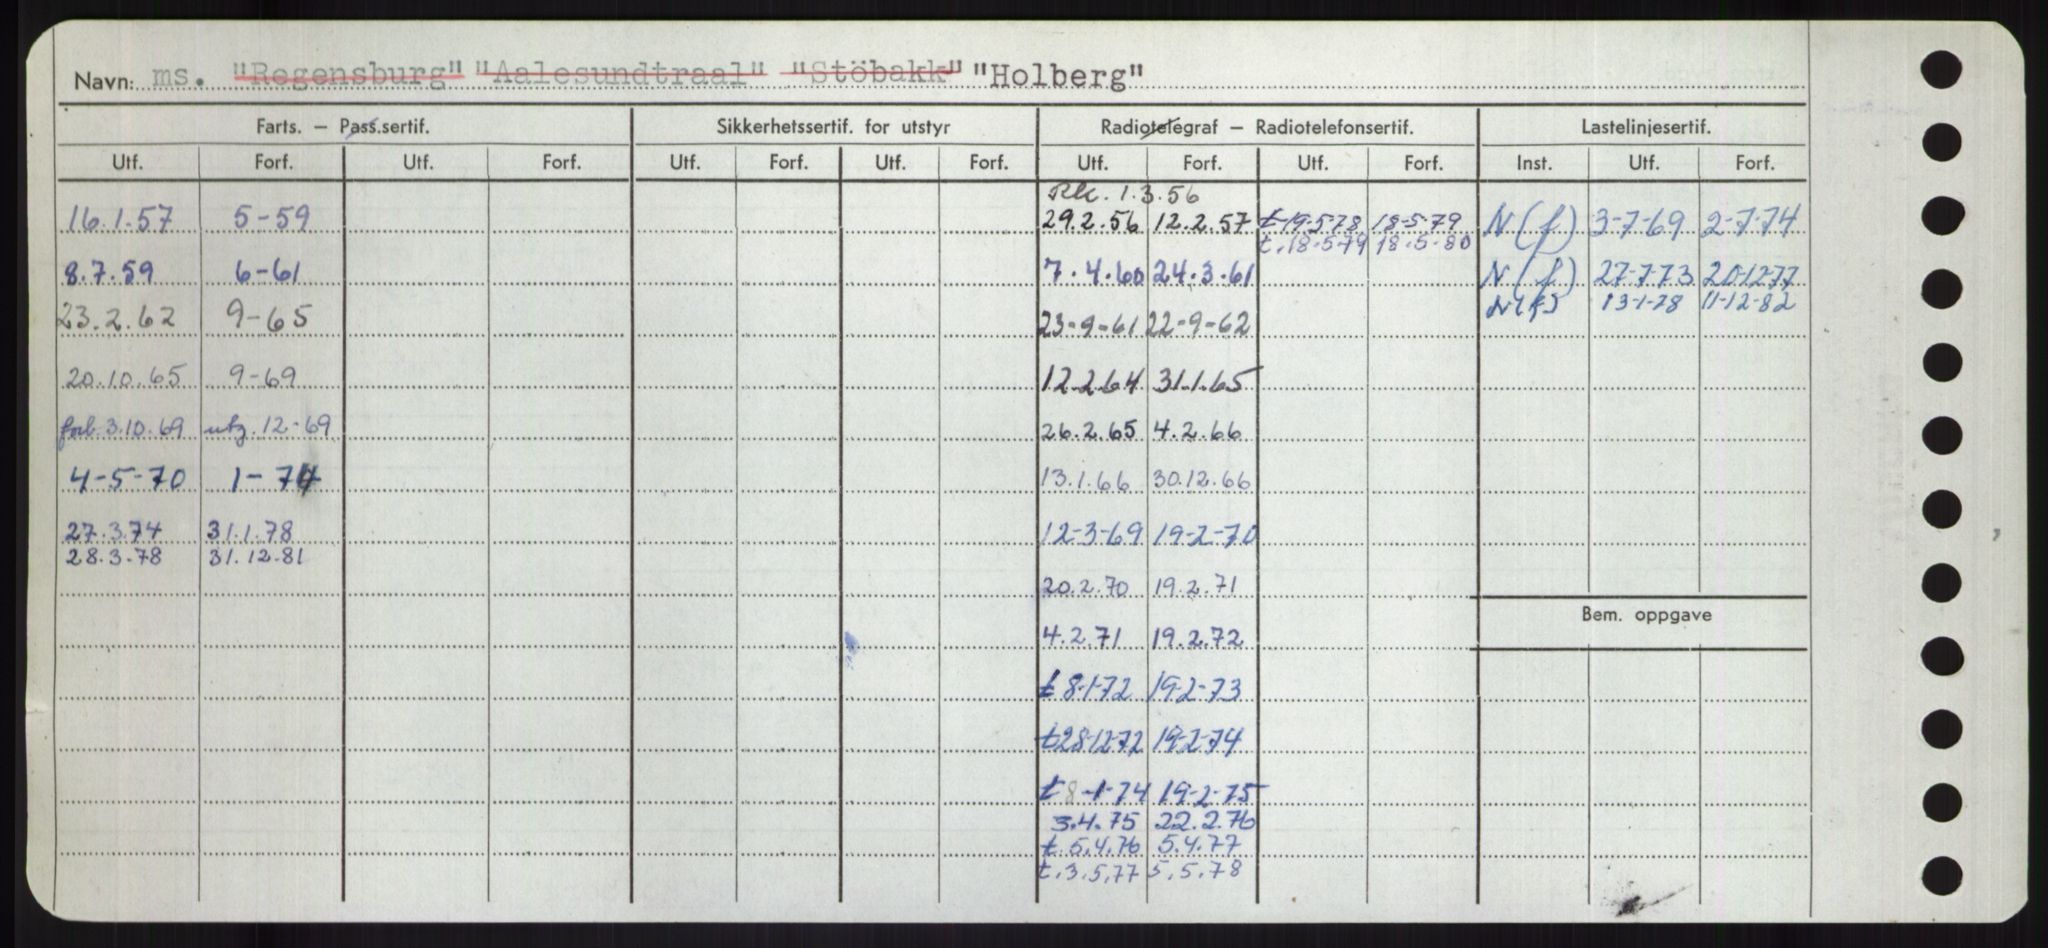 Navn: ms. "Regensburg" "Aalesundtraal" "Stöbakk" "Holberg"
Farts. – Pass.sertif. Sikkerhetssertif. for utstyr Radiotelegraf – Radiotelefonsertif. Lastelinjesertif.
Utf. Forf. Utf. Forf. Utf. Forf. Utf. Forf. Utf. Forf. Utf. Forf. Inst. Utf. Forf.
Rk. 1.3.56
16.1.57 5-59 29.2.56 12.2.57 t-19-5-78 18-5-79 N(f) 3-7-69 2-7-74
t.18-5-79 18-5-80
8.7.59 6-61 7.4.60 24.3.61 N(f) 27-7-73 20-12-77
N(f) 13-1-78 11-12-82
23.2.62 9-65 23-9-61 22-9-62
20.10.65 9-69 12.2.64 31.1.65
forl. 3.10.69 utg. 12-69 26.2.65 4.2.66
4-5-70 1-74 13.1.66 30.12.66
27.3.74 31.1.78 12-3-69 19-2-70
28.3.78 31.12.81
20.2.70 19.2.71
Bem. oppgave
4.2.71 19.2.72
t 8-1-72 19-2-73
t 28-12-72 19-2-74
t 8-1-74 19-2-75
3.4.75 22.2.76
t.5.4.76 5.4.77
t.3.5.77 5.5.78